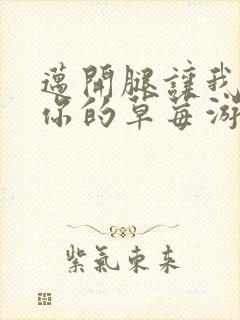 邁開腿讓我
你的草莓游
紫氣東來